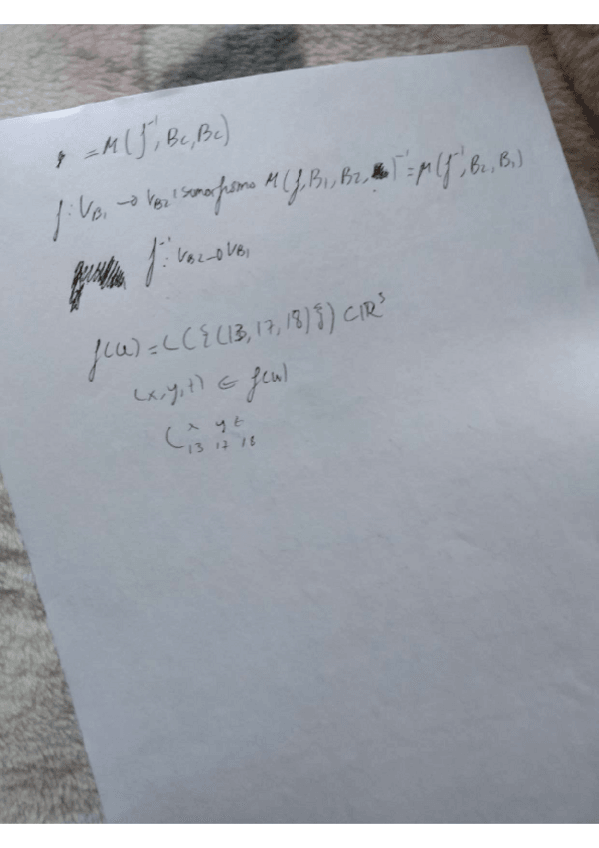 = M(f⁻¹, Bc, Bc)
f: V_B₁ → V_B₂ isomorfismo M(f, B₁, B₂, )⁻¹ = M(f⁻¹, B₂, B₁)
f⁻¹: V_B₂ → V_B₁
f(u) = L({(13, 17, 18)}) ⊂ ℝ³
(x, y, z) ∈ f(u)
( x y z
13 17 18